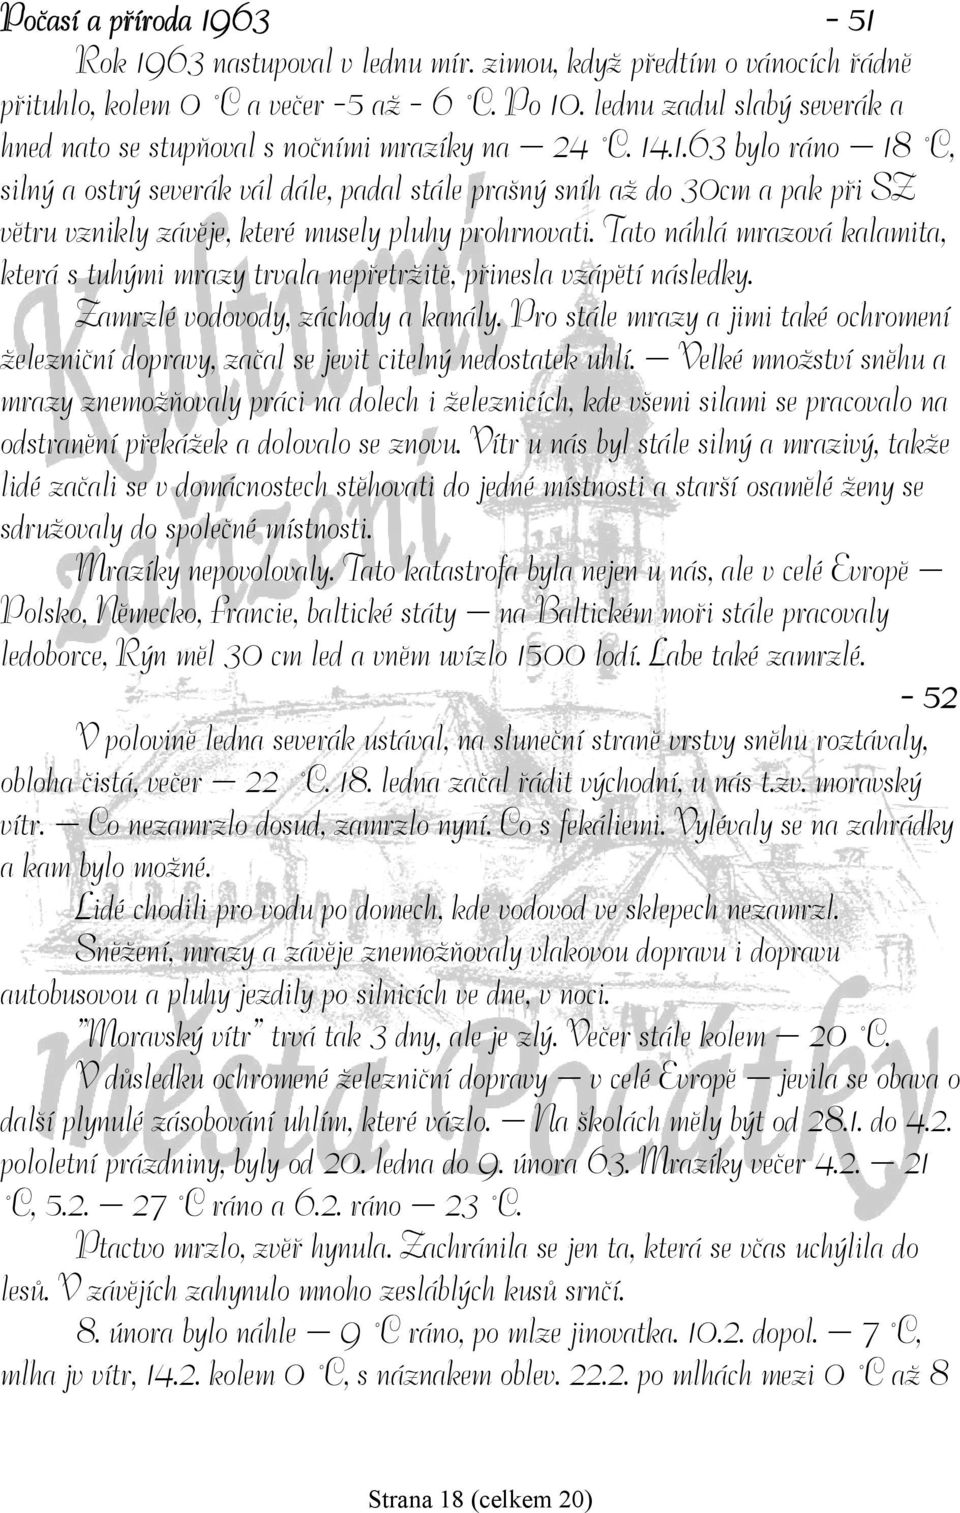 Počasí a příroda 1963 - 51
Rok 1963 nastupoval v lednu mír. zimou, když předtím o vánocích řádně
přituhlo, kolem 0 °C a večer -5 až - 6 °C. Po 10. lednu zadul slabý severák a
hned nato se stupňoval s nočními mrazíky na – 24 °C. 14.1.63 bylo ráno – 18 °C,
silný a ostrý severák vál dále, padal stále prašný sníh až do 30cm a pak při SZ
větru vznikly závěje, které musely pluhy prohrnovati. Tato náhlá mrazová kalamita,
která s tuhými mrazy trvala nepřetržitě, přinesla vzápětí následky.
Zamrzlé vodovody, záchody a kanály. Pro stále mrazy a jimi také ochromení
železniční dopravy, začal se jevit citelný nedostatek uhlí. – Velké množství sněhu a
mrazy znemožňovaly práci na dolech i železnicích, kde všemi silami se pracovalo na
odstranění překážek a dolovalo se znovu. Vítr u nás byl stále silný a mrazivý, takže
lidé začali se v domácnostech stěhovati do jedné místnosti a starší osamělé ženy se
sdružovaly do společné místnosti.
Mrazíky nepovolovaly. Tato katastrofa byla nejen u nás, ale v celé Evropě –
Polsko, Německo, Francie, baltické státy – na Baltickém moři stále pracovaly
ledoborce, Rýn měl 30 cm led a vněm uvízlo 1500 lodí. Labe také zamrzlé.
- 52
V polovině ledna severák ustával, na sluneční straně vrstvy sněhu roztávaly,
obloha čistá, večer – 22 °C. 18. ledna začal řádit východní, u nás t.zv. moravský
vítr. – Co nezamrzlo dosud, zamrzlo nyní. Co s fekáliemi. Vylévaly se na zahrádky
a kam bylo možné.
Lidé chodili pro vodu po domech, kde vodovod ve sklepech nezamrzl.
Sněžení, mrazy a závěje znemožňovaly vlakovou dopravu i dopravu
autobusovou a pluhy jezdily po silnicích ve dne, v noci.
"Moravský vítr" trvá tak 3 dny, ale je zlý. Večer stále kolem – 20 °C.
V důsledku ochromené železniční dopravy – v celé Evropě – jevila se obava o
další plynulé zásobování uhlím, které vázlo. – Na školách měly být od 28.1. do 4.2.
pololetní prázdniny, byly od 20. ledna do 9. února 63. Mrazíky večer 4.2. – 21
°C, 5.2. – 27 °C ráno a 6.2. ráno – 23 °C.
Ptactvo mrzlo, zvěř hynula. Zachránila se jen ta, která se včas uchýlila do
lesů. V závějích zahynulo mnoho zesláblých kusů srnčí.
8. února bylo náhle – 9 °C ráno, po mlze jinovatka. 10.2. dopol. – 7 °C,
mlha jv vítr, 14.2. kolem 0 °C, s náznakem oblev. 22.2. po mlhách mezi 0 °C až 8
Strana 18 (celkem 20)
Kulturní
zařízení
města Počátky